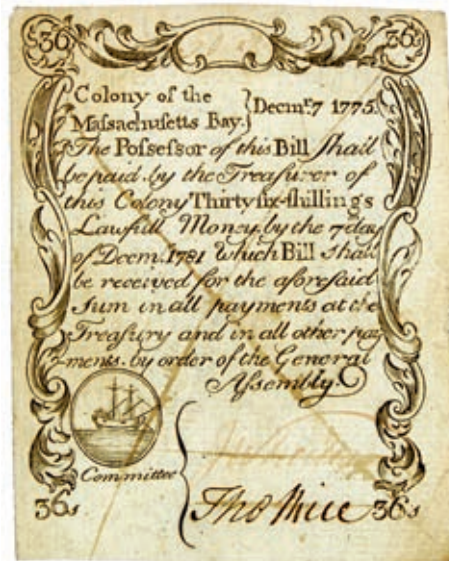 36s 36s
Colony of the
Massachusetts Bay.} Decmr. 7 1775.
The Possessor of this Bill shall
be paid by the Treasurer of
this Colony Thirty six shillings
Lawfull Money by the 7 day
of Decem. 1781 Which Bill shall
be received for the aforesaid
sum in all payments at the
Treasury and in all other pay-
ments. by order of the General
Assembly.
Committee
36s 36s